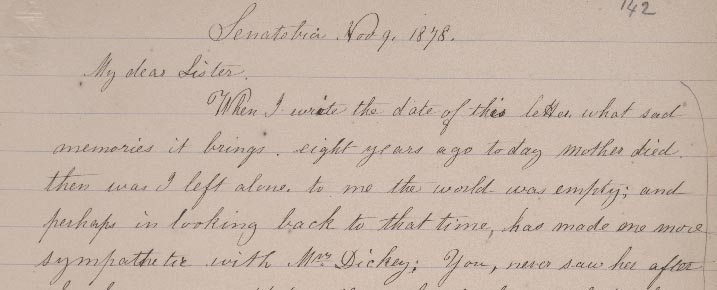 142
Senatobia Nov 9. 1878.
My dear Sister.
When I write the date of this letter what sad
memories it brings. eight years ago today mother died.
then was I left alone. to me the world was empty; and
perhaps in looking back to that time, has made me more
sympathetic with Mrs Dickey; You, never saw her after